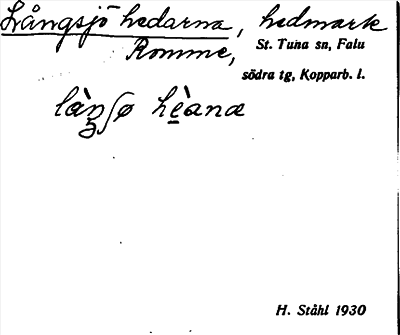 Långsjö hedarna, hedmark
Romme, St. Tuna sn, Falu
södra tg, Kopparb. l.
làŋʃø hèana
H. Ståhl 1930